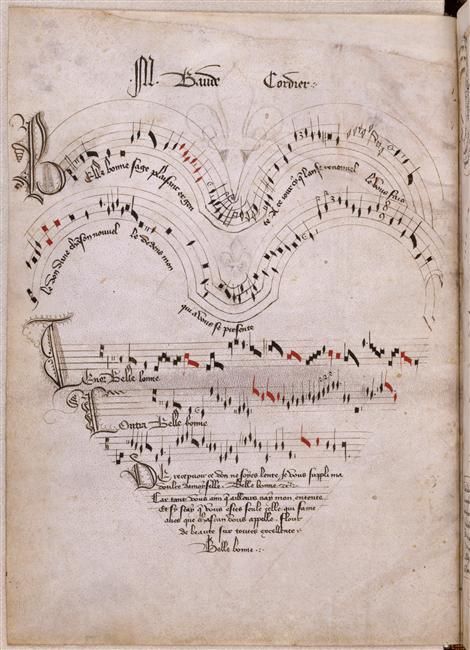 M. Baude Cordier
Belle bonne sage plaisant et gen
te A ce jour cy q lan se renouvel
le vous fais
le don dune chāson nouvel
le dedens mon
qui a vous se presente
Tenor Belle bonne
Contra Belle bonne
De recepvoir ce don ne soyes lente Je vous suppli ma
doulce damoyselle. Belle bonne
Car tant vous aim qailleurs nay mon entente
Et se scay q vous estes seule celle qui fame
aves que chascun vous appelle. Flour
de beaute sur toutes excellente
Belle bonne